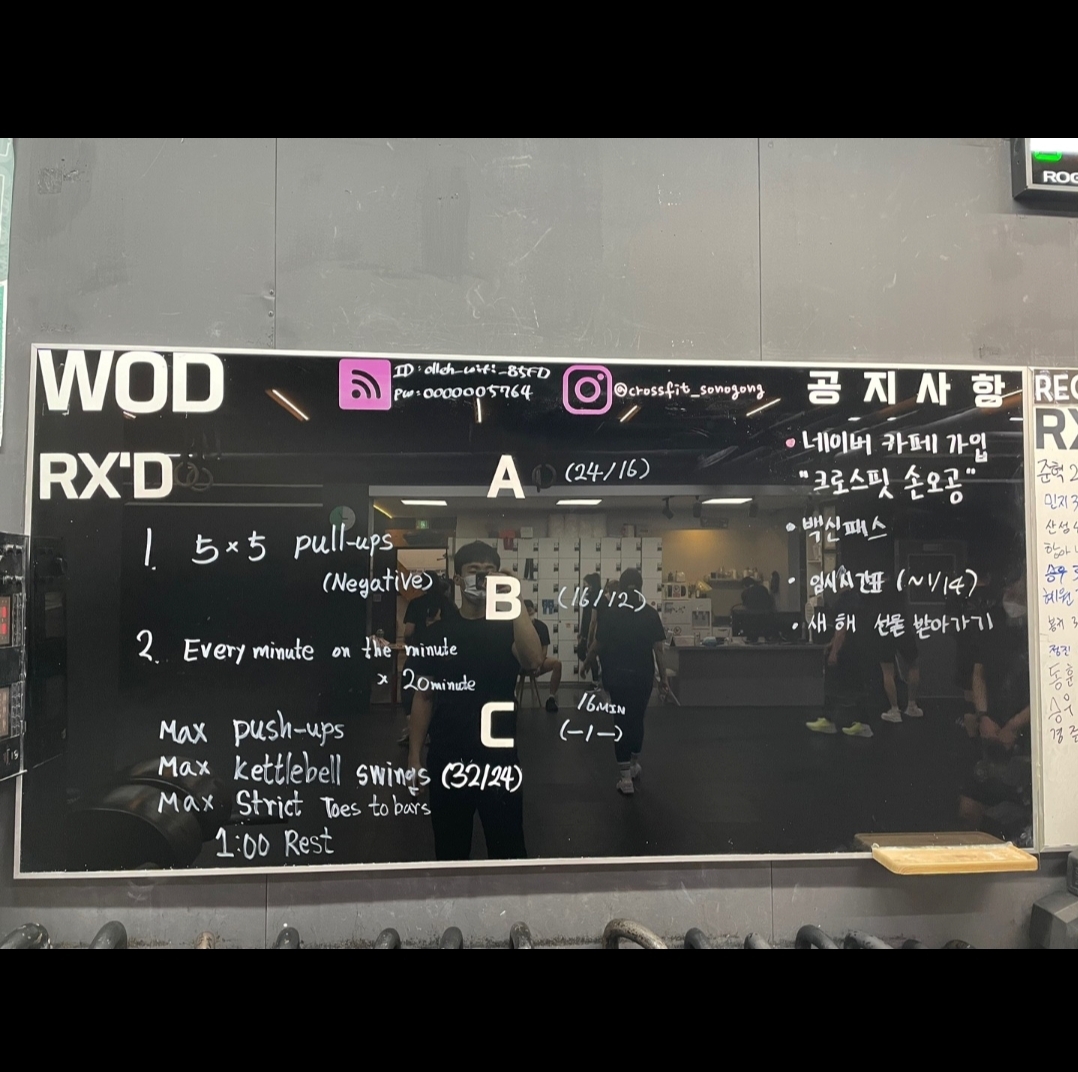 WOD
ID: olleh_wifi_B5FD
PW: 0000005764
@crossfit_sonogong
공지사항
RX'D
A (24/16)
1. 5×5 pull-ups
(Negative)
B (16/12)
2. Every minute on the minute
× 20minute
C 16MIN
(-/-)
Max push-ups
Max kettlebell swings (32/24)
Max Strict Toes to bars
1:00 Rest
• 네이버 카페 가입
"크로스핏 손오공"
• 백신패스
• 임시시간표 (~1/14)
• 새해 선물 받아가기
ROG
REC
RX
준혁 2
민지 3
산성
승우
혜원
정진
동훈
승우